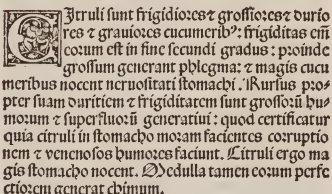 Citruli sunt frigidiores ⁊ grossiores ⁊ durio
res ⁊ grauiores cucumeribꝰ: frigiditas em̄
corum est in fine secundi gradus: proinde
grossum generant phlegma: ⁊ magis cucu
meribus nocent neruositati stomachi. Rursus pro⸗
pter suam duritiem ⁊ frigiditatem sunt grossorū hu⸗
morum ⁊ superfluorū generatiui: quod certificatur
quia citruli in stomacho moram facientes corruptio
nem ⁊ venenosos humores faciunt. Citruli ergo ma
gis stomacho nocent. Medulla tamen eorum perfe
ctiorem generat chimum.